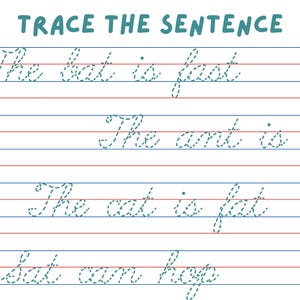 TRACE THE SENTENCE
The bat is fast
The ant is
The cat is fat
Sat can hop